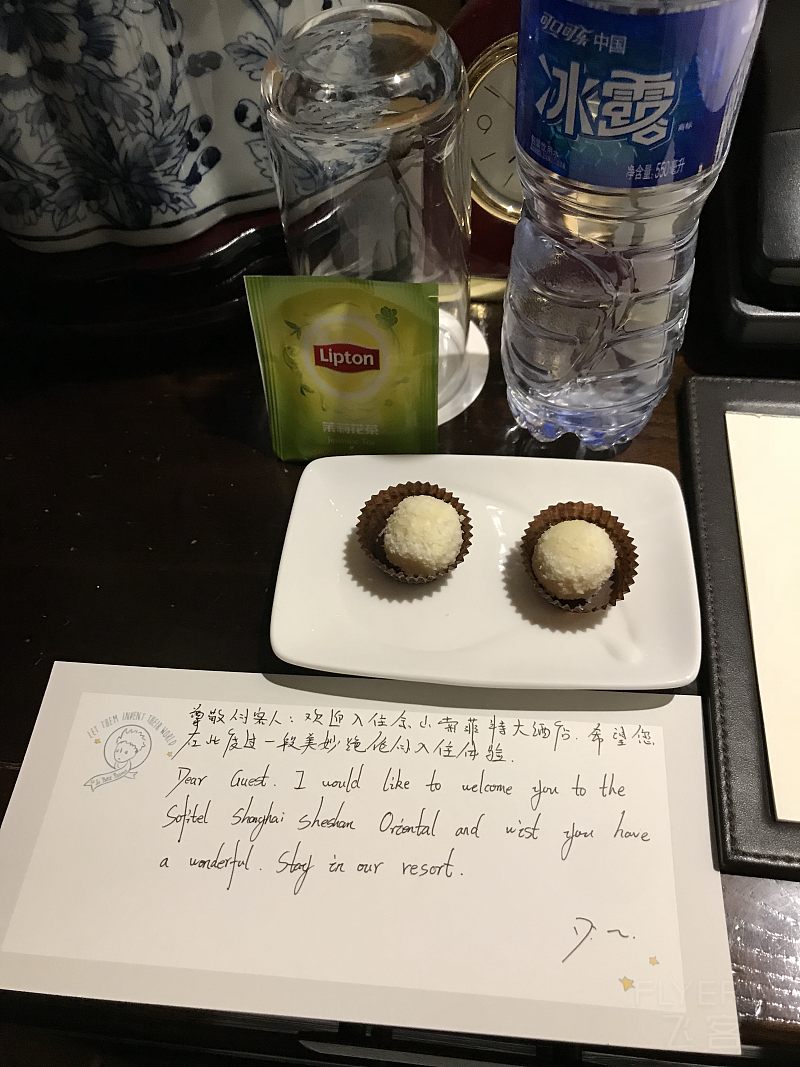 可口可乐 中国
冰露
商标
净含量: 550毫升
9
Lipton
茉莉花茶
Jasmine Tea
LET THEM INVENT THEIR WORLD
尊敬的客人: 欢迎入住佘山索菲特大酒店. 希望您
在此度过一段美妙绝伦的入住体验.
Dear Guest. I would like to welcome you to the
Sofitel Shanghai Sheshan Oriental and wist you have
a wonderful. Stay in our resort.
FLYER
飞客